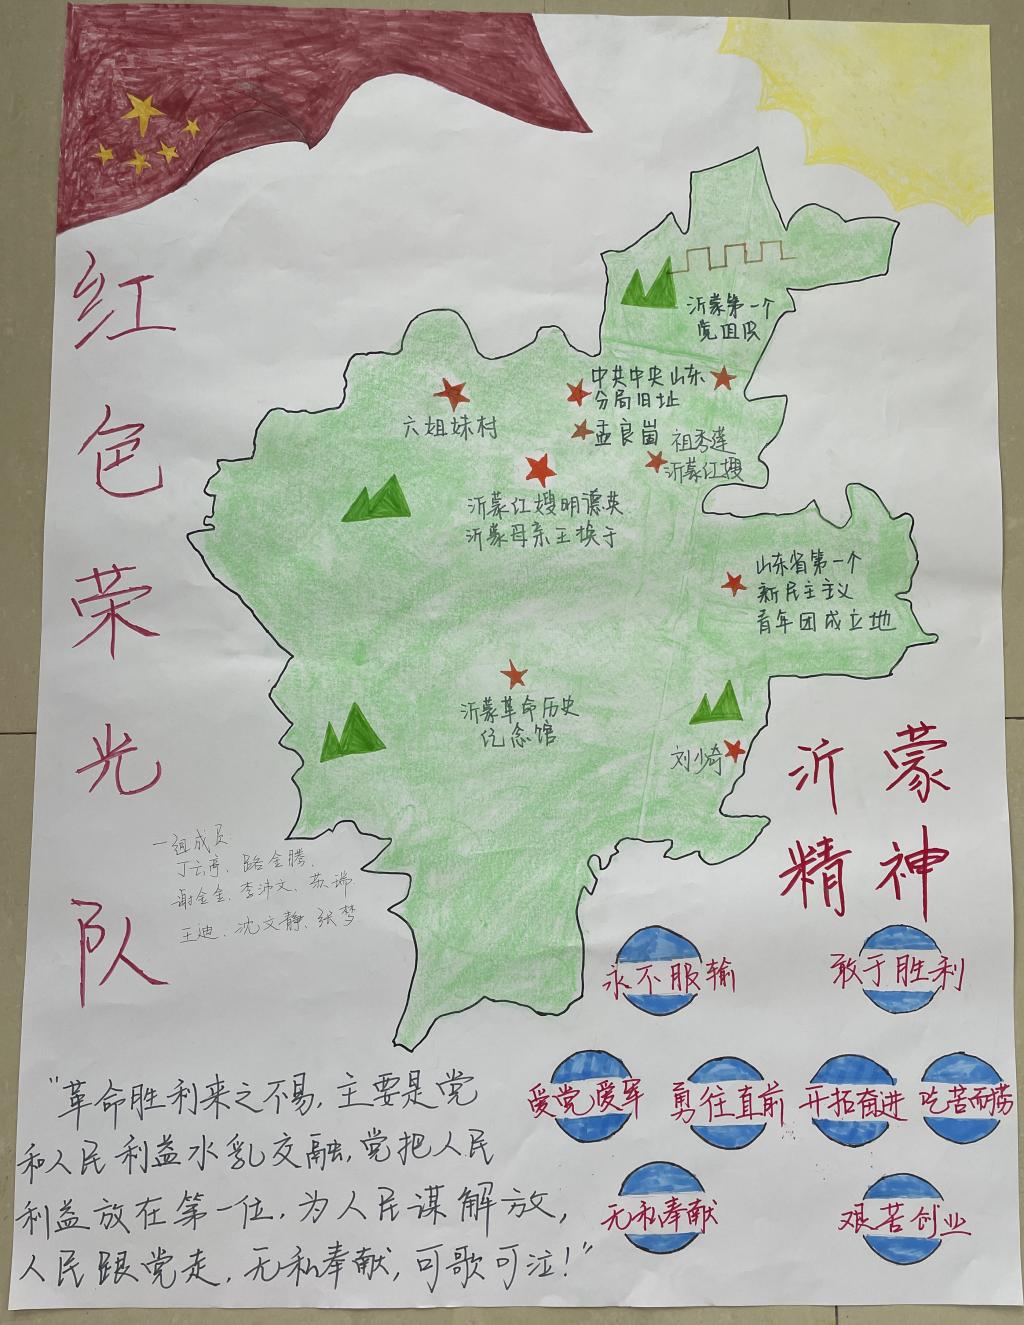 红色荣光队
沂蒙第一个
党组织
中共中央山东
分局旧址
六姐妹村
孟良崮
祖秀莲
沂蒙红嫂
沂蒙红嫂明德英
沂蒙母亲王换于
山东省第一个
新民主主义
青年团成立地
沂蒙革命历史
纪念馆
刘少奇
沂蒙
精神
一组成员
丁云亭、路全腾、
谢金金、李沛文、苏瑞
王迪、沈文静、张梦
永不服输
敢于胜利
爱党爱军
勇往直前
开拓奋进
吃苦耐劳
无私奉献
艰苦创业
"革命胜利来之不易，主要是党
和人民利益水乳交融，党把人民
利益放在第一位，为人民谋解放，
人民跟党走，无私奉献，可歌可泣！"